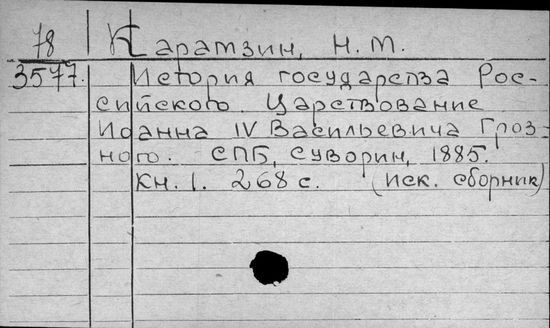 78 Карамзин, Н. М.
3577. История государства Рос-
сийского. Царствование
Иоанна IV Васильевича Гроз-
ного. СПБ, Суворин, 1885.
Кн. 1. 268 с. (иск. сборник)